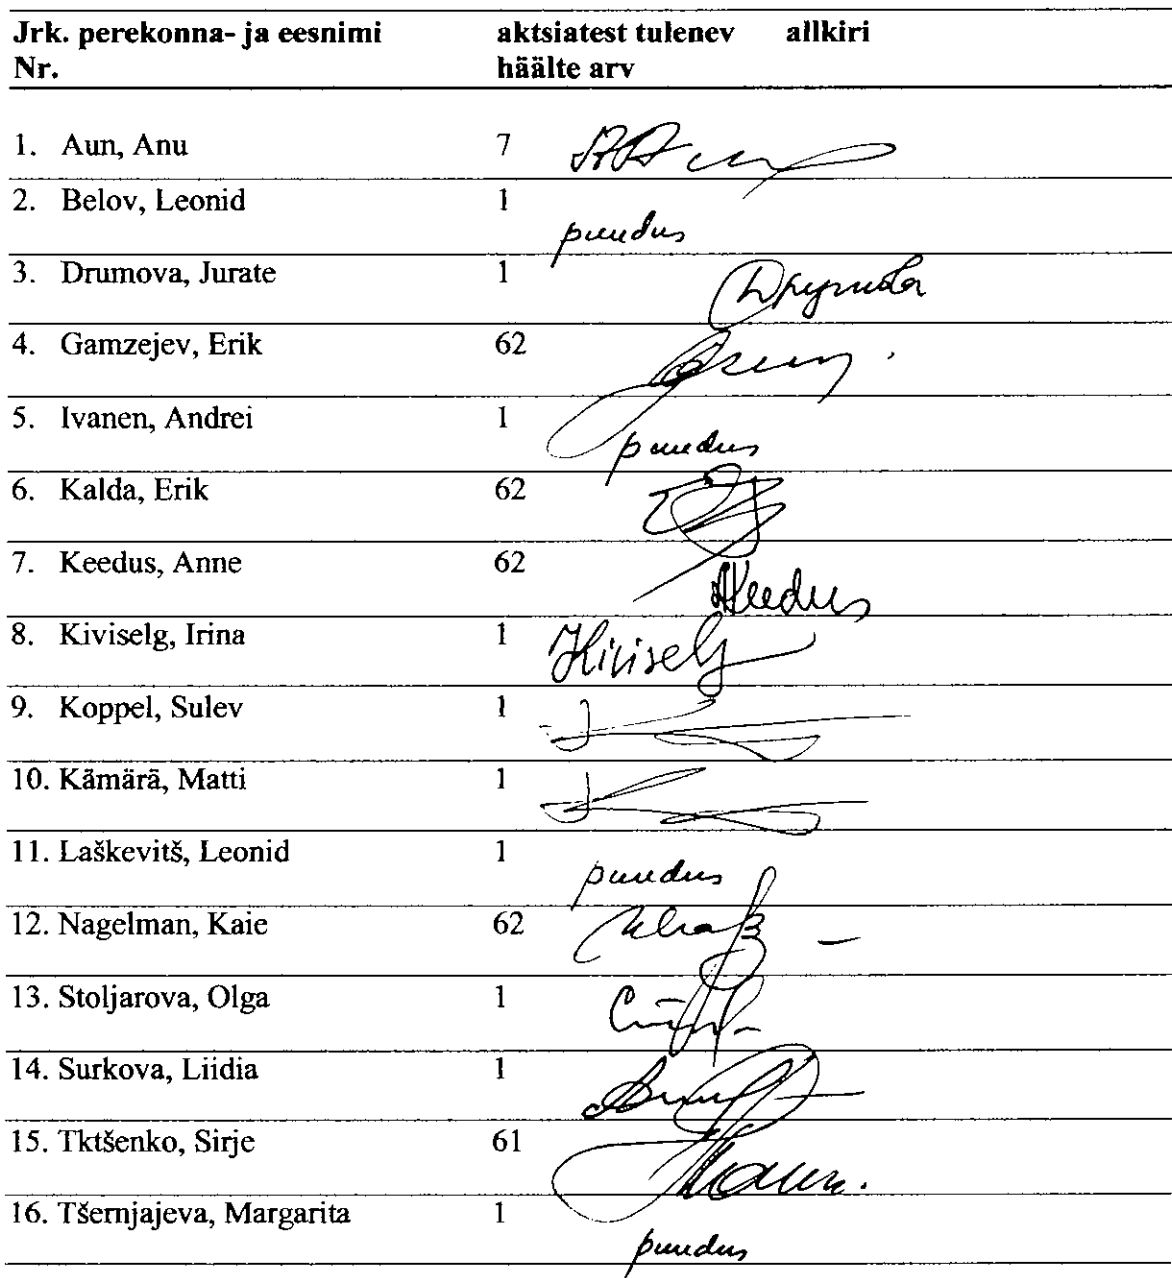 Jrk. perekonna- ja eesnimi aktsiatest tulenev allkiri
Nr. häälte arv
1. Aun, Anu 7
2. Belov, Leonid 1
puudus
3. Drumova, Jurate 1
4. Gamzejev, Erik 62
5. Ivanen, Andrei 1
puudus
6. Kalda, Erik 62
7. Keedus, Anne 62
AKeedus
8. Kiviselg, Irina 1
Kiviselg
9. Koppel, Sulev 1
10. Kämärä, Matti 1
11. Laškevitš, Leonid 1
puudus
12. Nagelman, Kaie 62
13. Stoljarova, Olga 1
14. Surkova, Liidia 1
15. Tktšenko, Sirje 61
16. Tšernjajeva, Margarita 1
puudus